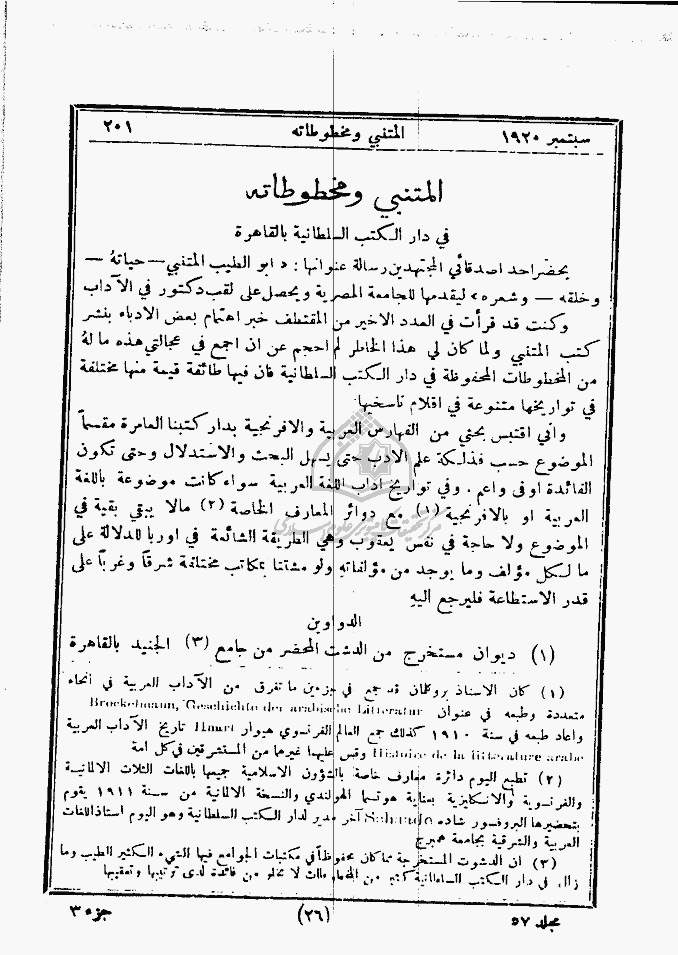 سبتمبر ١٩٢٠ المتنبي ومخطوطاته ٢٠١
المتنبي ومخطوطاته
في دار الكتب السلطانية بالقاهرة
يحضر احد اصدقائي المجتهدين رسالة عنوانها : « ابو الطيب المتنبي — حياتهُ —
وخلقه — وشعره » ليقدمها للجامعة المصرية ويحصل على لقب دكتور في الآداب
وكنت قد قرأت في العدد الاخير من المقتطف خبر اهتمام بعض الادباء بنشر
كتب المتنبي ولما كان لي هذا الخاطر لم احجم عن ان اجمع في عجالتي هذه ما لهُ
من المخطوطات المحفوظة في دار الكتب السلطانية فان فيها طائفة قيمة منها مختلفة
في تواريخها متنوعة في اقلام ناسخيها
واني اقتبس بحثي من الفهارس العربية والافرنجية بدار كتبنا العامرة مقسماً
الموضوع حسب فذلكة علم الادب حتى يسهل البحث والاستدلال وحتى تكون
الفائدة اوفى واعم . وفي تواريخ آداب اللغة العربية سواء كانت موضوعة باللغة
العربية او بالافرنجية (١) مع دوائر المعارف الخاصة (٢) مالا يبقي بقية في
الموضوع ولا حاجة في نفس يعقوب وهي الطريقة الشائعة في اوربا للدلالة على
ما لكل مؤلف وما يوجد من مؤلفاته ولو مشتتا بمكاتب مختلفة شرقاً وغرباً على
قدر الاستطاعة فليرجع اليهِ
الدواوين
(١) ديوان مستخرج من الدشت المحضر من جامع (٣) الجنيد بالقاهرة
(١) كان الاستاذ بروكلمان قد جمع في جزءين ما تفرق من الآداب العربية في انحاء
متعددة وطبعه في عنوان Brockelmann, Geschichte der arabische Litteratur
واعاد طبعه في سنة ١٩١٠ كذلك جمع العالم الفرنسوي هيوار Huart تاريخ الآداب العربية
Histoire de la littérature arabe وقس عليهما غيرهما من المستشرقين في كل امة
(٢) تطبع اليوم دائرة معارف خاصة بالشؤون الاسلامية جميعها باللغات الثلاث الالمانية
والفرنسوية والانكليزية بعناية هوتسما الهولندي والنسخة الالمانية من سنة ١٩١١ يقوم
بتحضيرها البروفسور شاده Schaade آخر مدير لدار الكتب السلطانية وهو اليوم استاذ اللغات
العربية والشرقية بجامعة همبرج
(٣) ان الدشوت المستخرجة مما كان محفوظاً في مكتبات الجوامع فيها الشيء الكثير الطيب وما
زال في دار الكتب السلطانية كثير من المخطوطات لا تخلو من فائدة لدى ترتيبها
مجلد ٥٧ (٢٦) جزء ٣